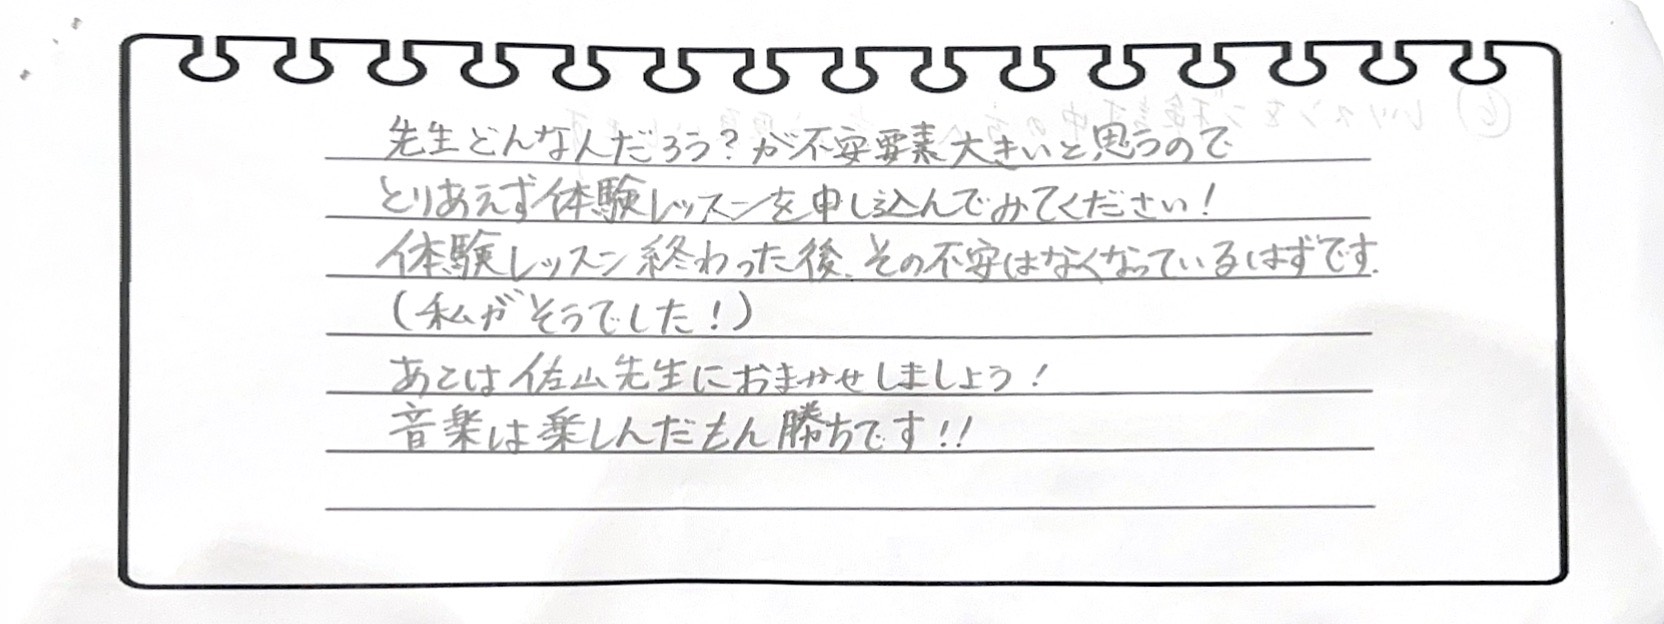 先生どんなんだろう?が不安要素大きいと思うので
とりあえず体験レッスンを申し込んでみてください!
体験レッスン終わった後、その不安はなくなっているはずです。
(私がそうでした!)
あとは佐山先生におまかせしましょう!
音楽は楽しんだもん勝ちです!!